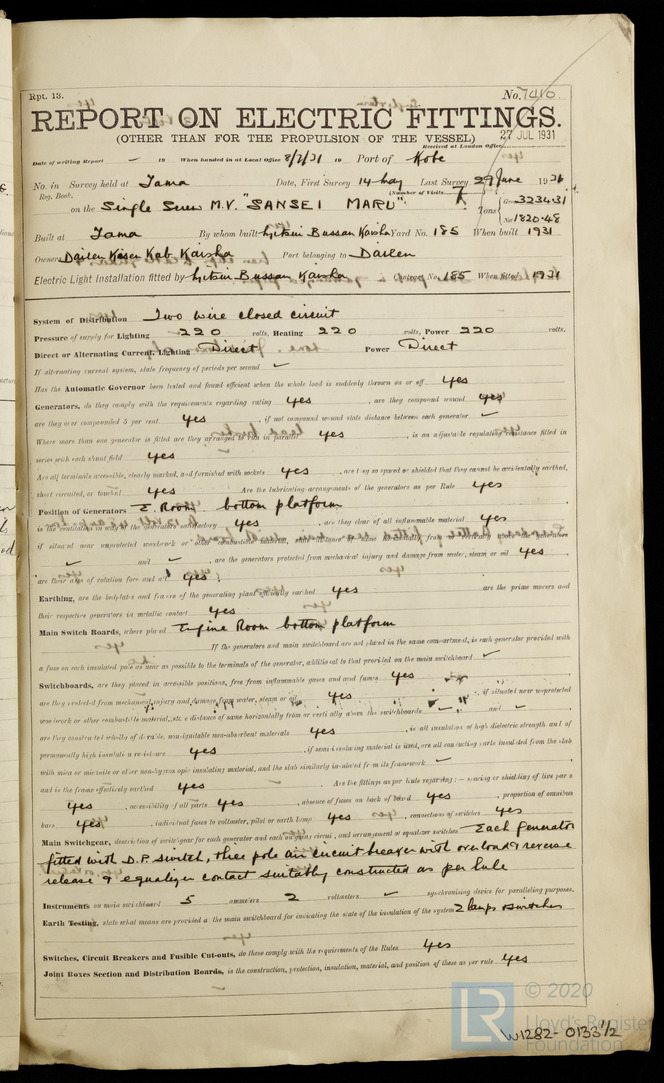 Rpt. 13.
No. 7416
REPORT ON ELECTRIC FITTINGS.
(OTHER THAN FOR THE PROPULSION OF THE VESSEL)
27 JUL 1931
Received at London Office
Date of writing Report 19 When handed in at Local Office 8/7/31 19 Port of Kobe
No. in Survey held at Tama Date, First Survey 14 May Last Survey 29 June 1931
Reg. Book. (Number of Visits 7
on the Single Screw M.V. "SANSEI MARU" Tons Gross 3234.31
Net 1820.48
Built at Tama By whom built Mitsui Bussan Kaisha Yard No. 185 When built 1931
Owners Dairen Kisen Kab. Kaisha Port belonging to Dairen
Electric Light Installation fitted by Mitsui Bussan Kaisha Contract No. 185 When fitted 1931
System of Distribution Two wire closed circuit
Pressure of supply for Lighting 220 volts, Heating 220 volts, Power 220 volts.
Direct or Alternating Current, Lighting Direct Power Direct
If alternating current system, state frequency of periods per second
Has the Automatic Governor been tested and found efficient when the whole load is suddenly thrown on or off yes
Generators, do they comply with the requirements regarding rating yes, are they compound wound yes
are they over compounded 5 per cent yes, if not compound wound state distance between each generator
Where more than one generator is fitted are they arranged to run in parallel yes, is an adjustable regulating resistance fitted in
series with each shunt field yes
Are all terminals accessible, clearly marked, and furnished with sockets yes, are they so spaced or shielded that they cannot be accidentally earthed,
short circuited, or touched yes Are the lubricating arrangements of the generators as per Rule yes
Position of Generators E. Room bottom platform
is the ventilation in way of the generators satisfactory yes, are they clear of all inflammable material yes
if situated near unprotected woodwork or other combustible
and, are the generators protected from mechanical injury and damage from water, steam or oil yes
are their axes of rotation fore and aft yes
Earthing, are the bedplates and frames of the generating plant efficiently earthed yes are the prime movers and
their respective generators in metallic contact yes
Main Switch Boards, where placed Engine Room bottom platform
If the generators and main switchboard are not placed in the same compartment, is each generator provided with
a fuse on each insulated pole as near as possible to the terminals of the generator, additional to that provided on the main switchboard
Switchboards, are they placed in accessible positions, free from inflammable gases and acid fumes yes
are they protected from mechanical injury and damage from water, steam or oil yes, if situated near unprotected
woodwork or other combustible material, state distance of same horizontally from or vertically above the switchboards and
are they constructed wholly of durable, non-ignitable non-absorbent materials yes, is all insulation of high dielectric strength and of
permanently high insulation resistance yes, if semi-insulating material is used, are all conducting parts insulated from the slab
with mica or micanite or other non-hygroscopic insulating material, and the slab similarly insulated from its framework
and is the frame effectively earthed yes Are the fittings as per Rule regarding:— spacing or shielding of live parts
yes, accessibility of all parts yes, absence of fuses on back of board yes, proportion of omnibus
bars yes, individual fuses to voltmeter, pilot or earth lamp yes, connections of switches yes
Main Switchgear, description of switchgear for each generator and each outgoing circuit, and arrangement of equalizer switches Each generator
fitted with D.P. switch, three pole air circuit breaker with overload & reverse
release & equalizer contact suitably constructed as per Rule
Instruments on main switchboard 5 ammeters 2 voltmeters synchronising device for paralleling purposes.
Earth Testing, state what means are provided at the main switchboard for indicating the state of the insulation of the system 2 lamps & switches
Switches, Circuit Breakers and Fusible Cut-outs, do these comply with the requirements of the Rules yes
Joint Boxes Section and Distribution Boards, is the construction, protection, insulation, material, and position of these as per rule yes
LR
© 2020
Lloyd's Register
Foundation
W1282-0133 1/2